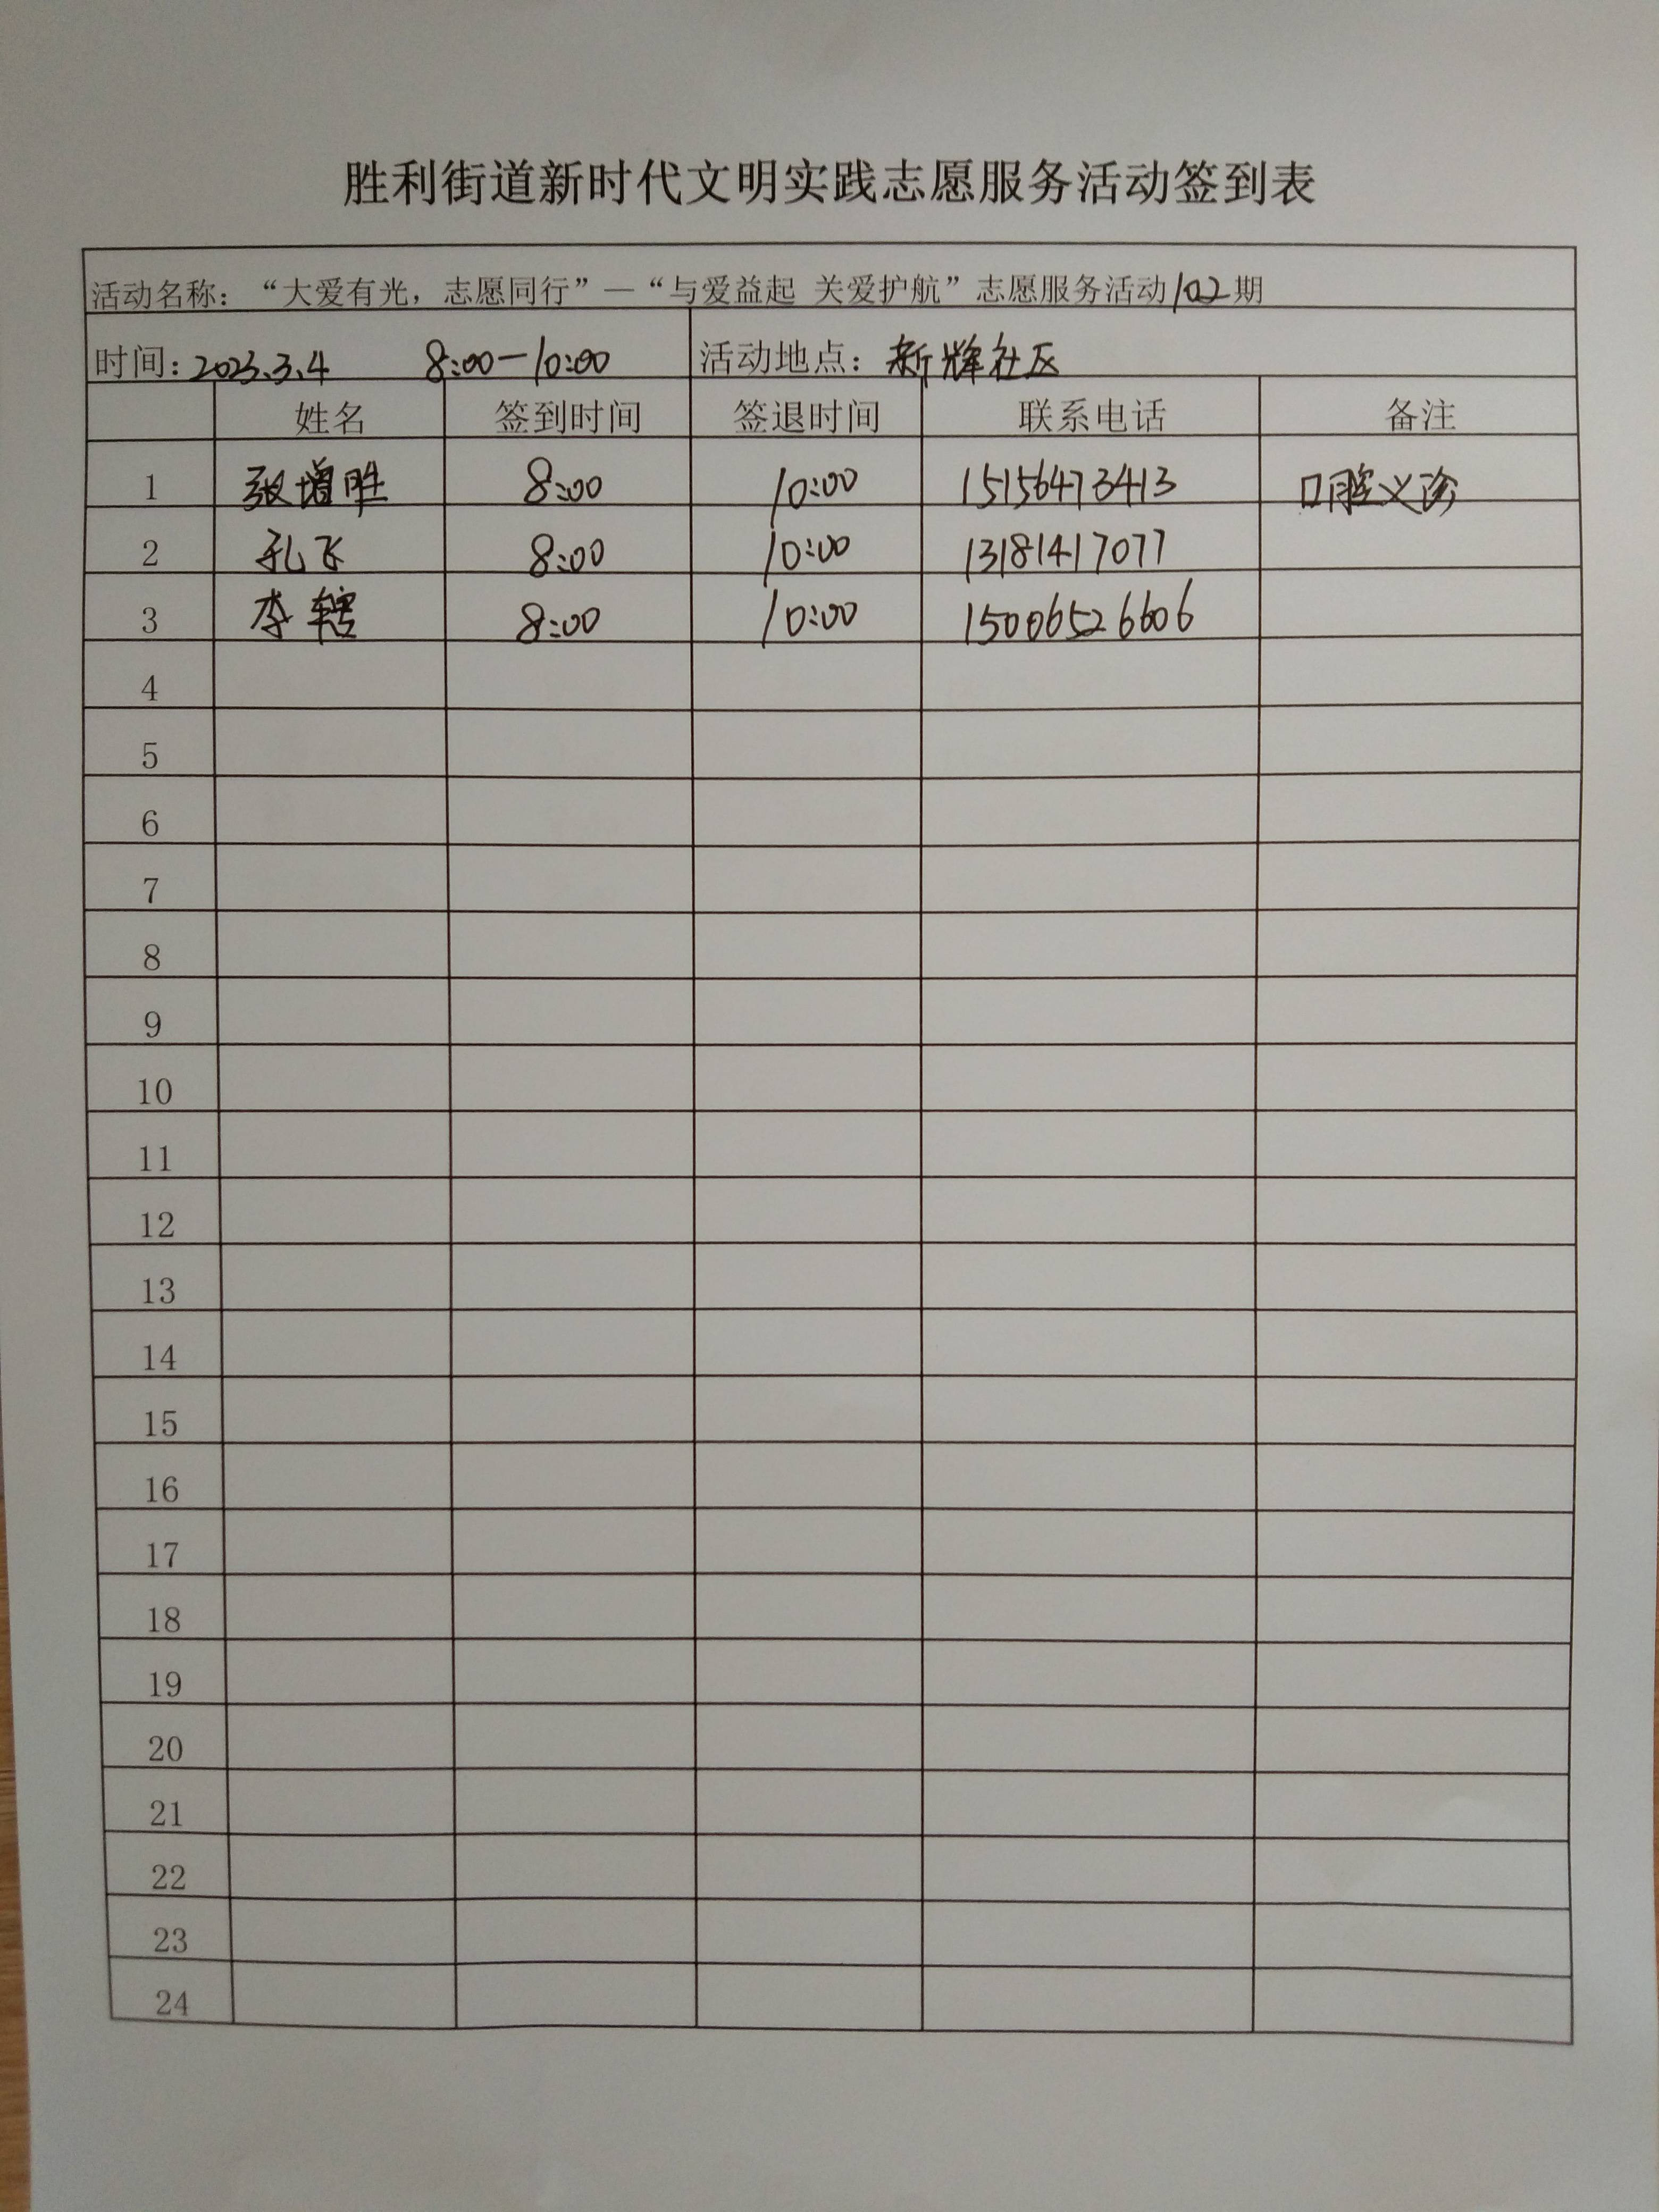 胜利街道新时代文明实践志愿服务活动签到表
活动名称：“大爱有光，志愿同行”—“与爱益起 关爱护航”志愿服务活动102期
时间：2023.3.4 8:00—10:00 活动地点：新辉社区
姓名 签到时间 签退时间 联系电话 备注
1 张增胜 8:00 10:00 15156473413 口腔义诊
2 孔飞 8:00 10:00 13181417077
3 李辖 8:00 10:00 15006526606
4
5
6
7
8
9
10
11
12
13
14
15
16
17
18
19
20
21
22
23
24